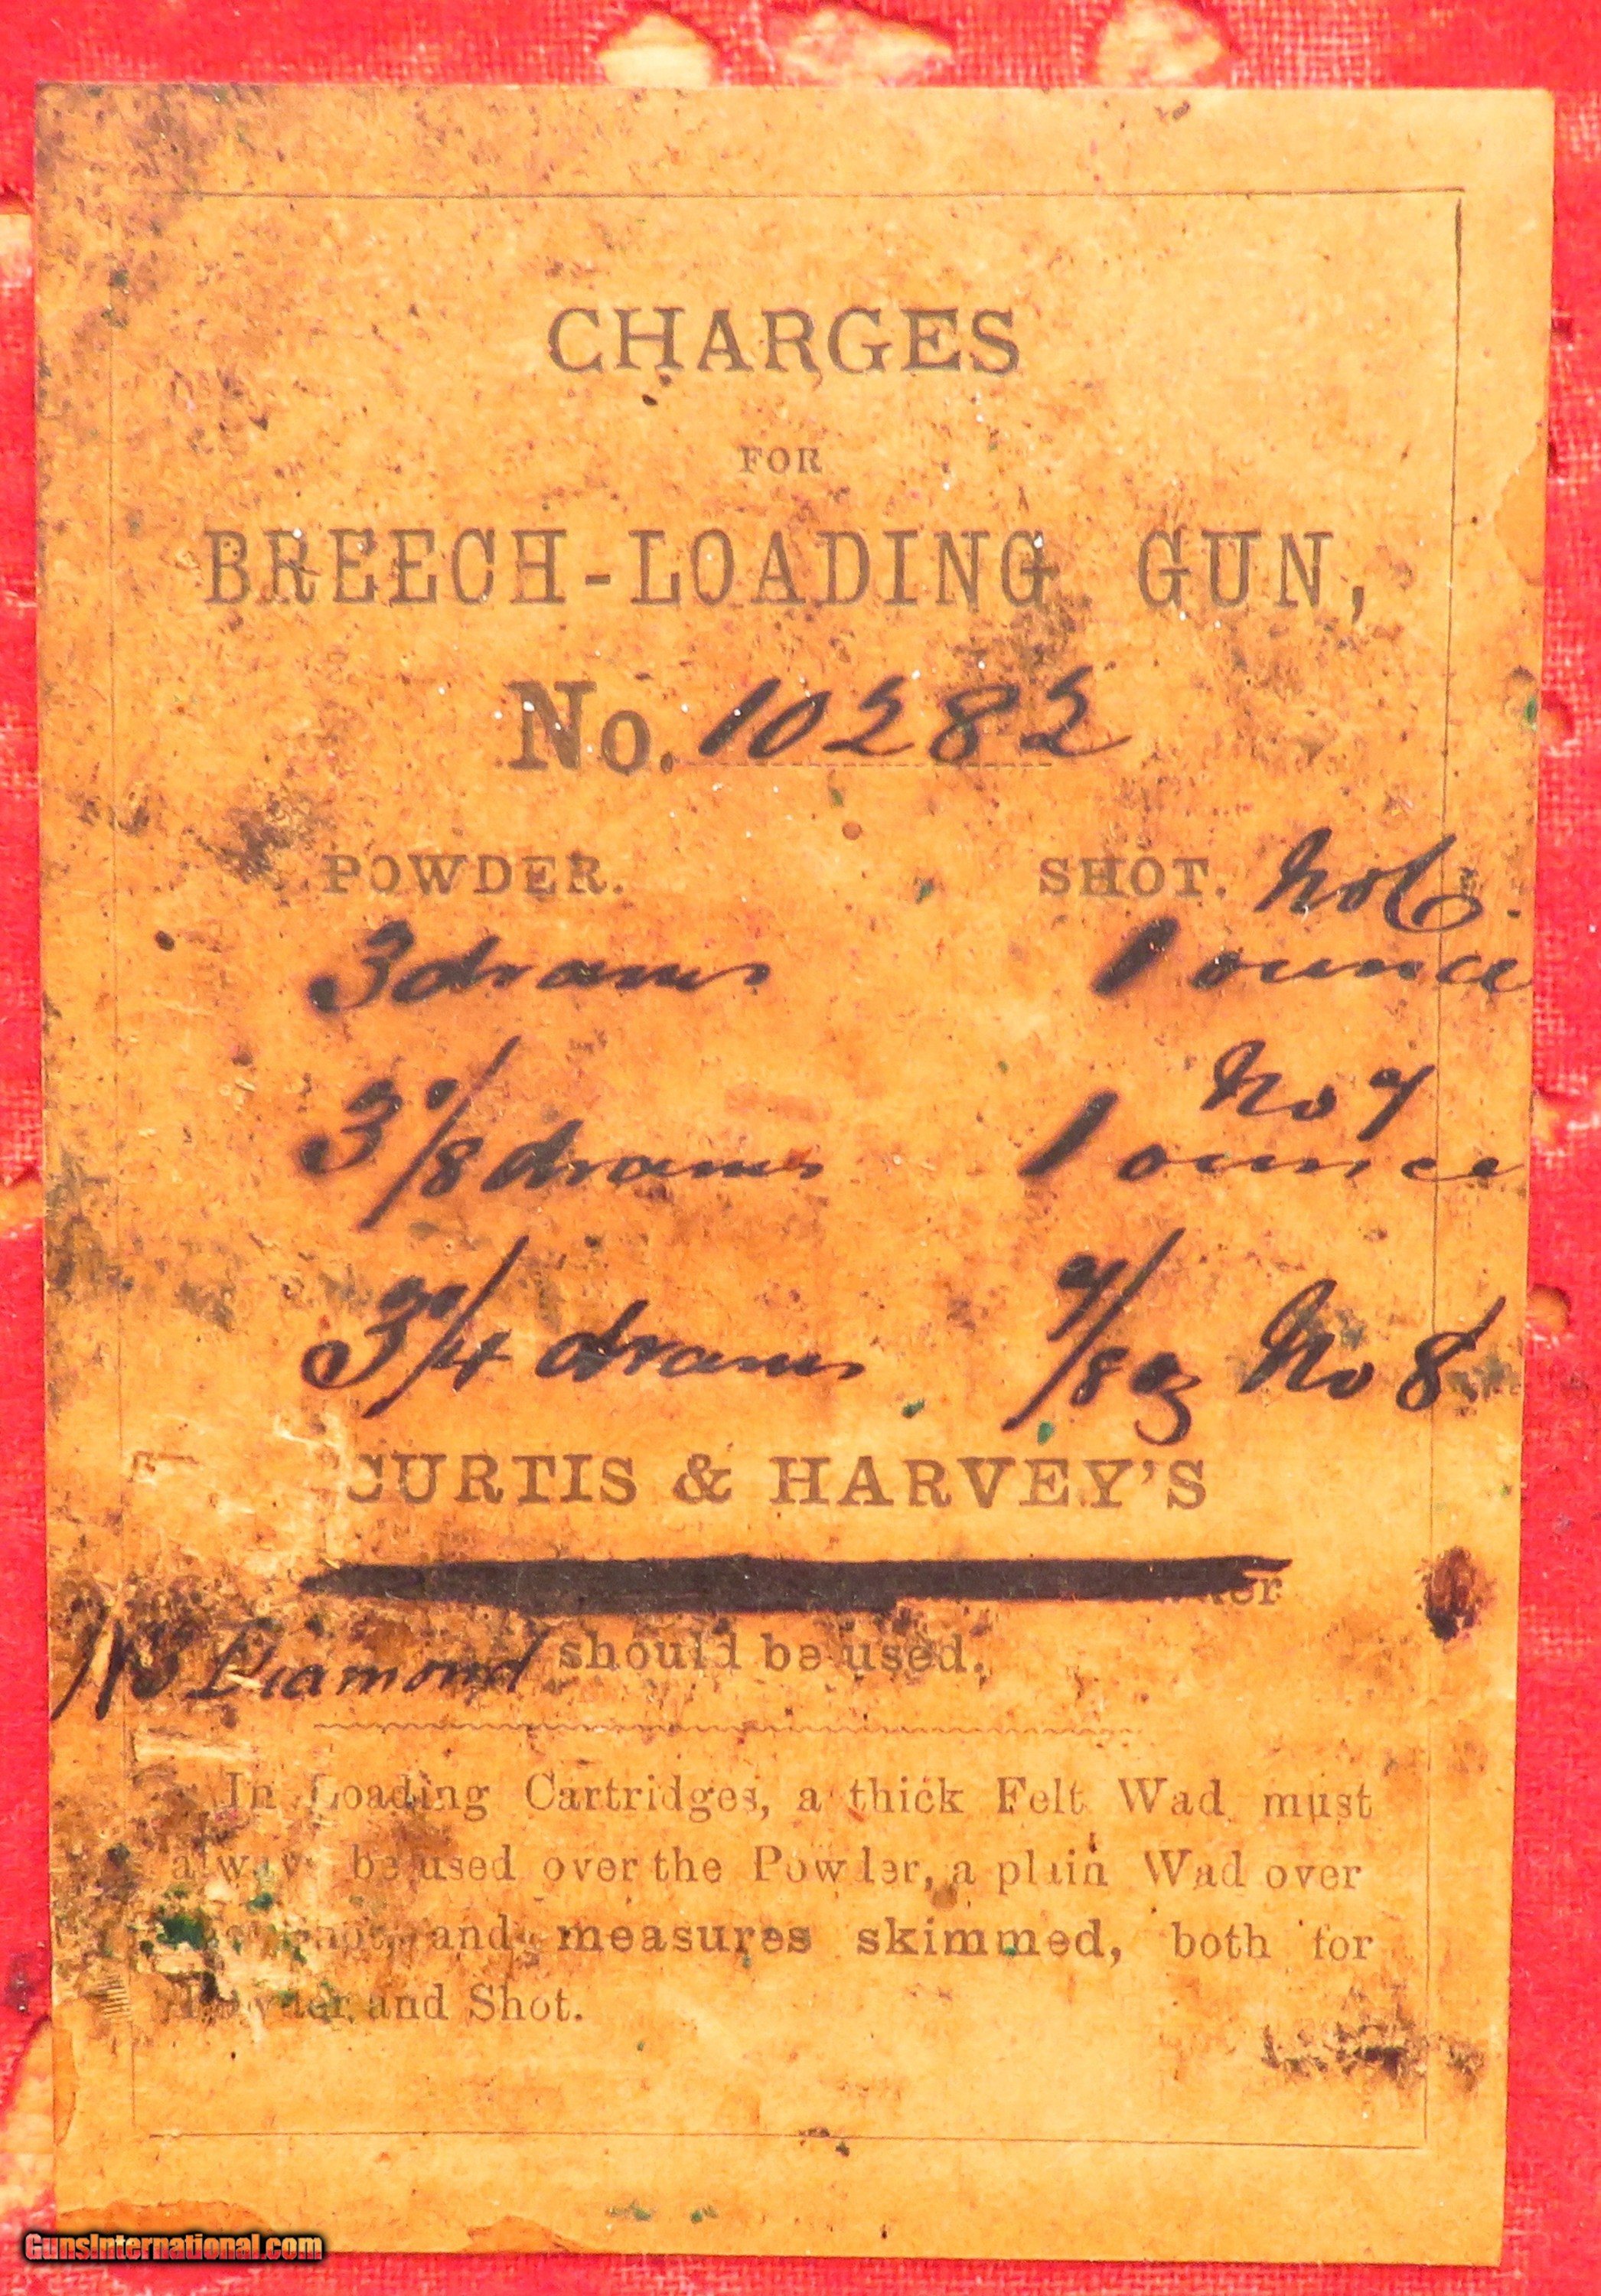 CHARGES
FOR
BREECH-LOADING GUN,
No. 10282
POWDER. SHOT. No 6
3 drams 1 ounce
No 7
3 1/8 drams 1 ounce
3 1/4 drams 7/8 oz No 8
CURTIS & HARVEY'S
Diamond should be used.
In Loading Cartridges, a thick Felt Wad must
always be used over the Powder, a plain Wad over
Shot, and measures skimmed, both for
Powder and Shot.
GunsInternational.com